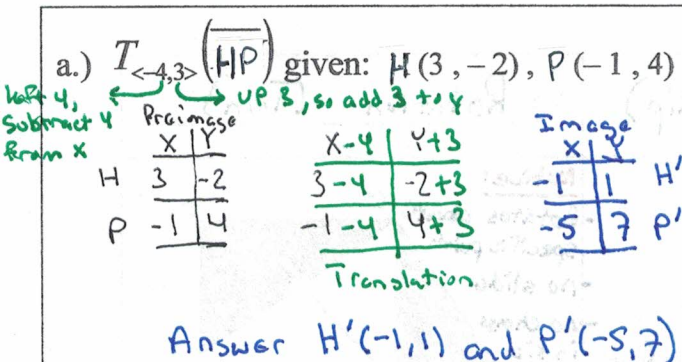 a.) T<-4,3> (HP) given: H (3 , -2) , P (-1 , 4)
left 4, subtract 4 from X
UP 3, so add 3 to y
Preimage
X | Y
H 3 | -2
P -1 | 4
X-4 | Y+3
3-4 | -2+3
-1-4 | 4+3
Translation
Image
X | Y
-1 | 1 H'
-5 | 7 P'
Answer H'(-1,1) and P'(-5,7)